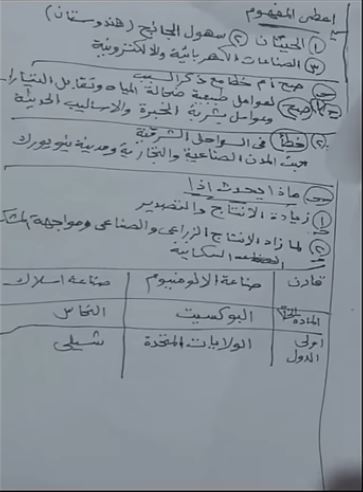 اعطى المفهوم
① الجيتان ② سهول الجانج (هندوستان)
③ الصناعات الكهربائية والالكترونية
صح أم خطأ مع ذكر السبب
① صح لعوامل طبيعية ضحالة المياه وتقابل التيارا
وعوامل بشرية الخبرة والاساليب الحديثة
② خطأ فى السواحل الشرقية
حيث المدن الصناعية والتجارية ومدينة نيويورك
ماذا يحدث اذا
① زيادة الانتاج والتصدير
② لما زاد الانتاج الزراعى والصناعى ومواجهة المشك
السكانية
قارن صناعة الالومنيوم صناعة اسلاك
المادة البوكسيت النحاس
اولى الدول الولايات المتحدة شيلى